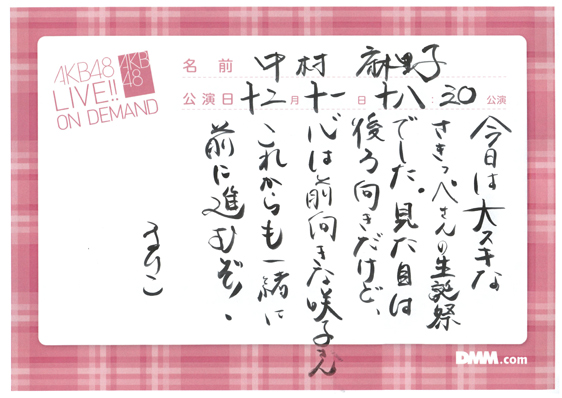 AKB48
LIVE!!
ON DEMAND
AKB
48
名前 中村 麻里子
公演日 十二月十一日 十八:30公演
今日は大スキな
さきっぺさんの生誕祭
でした。見た目は
後ろ向きだけど、
心は前向きな咲子さん
これからも一緒に
前に進むぞ!
まりこ
DMM.com